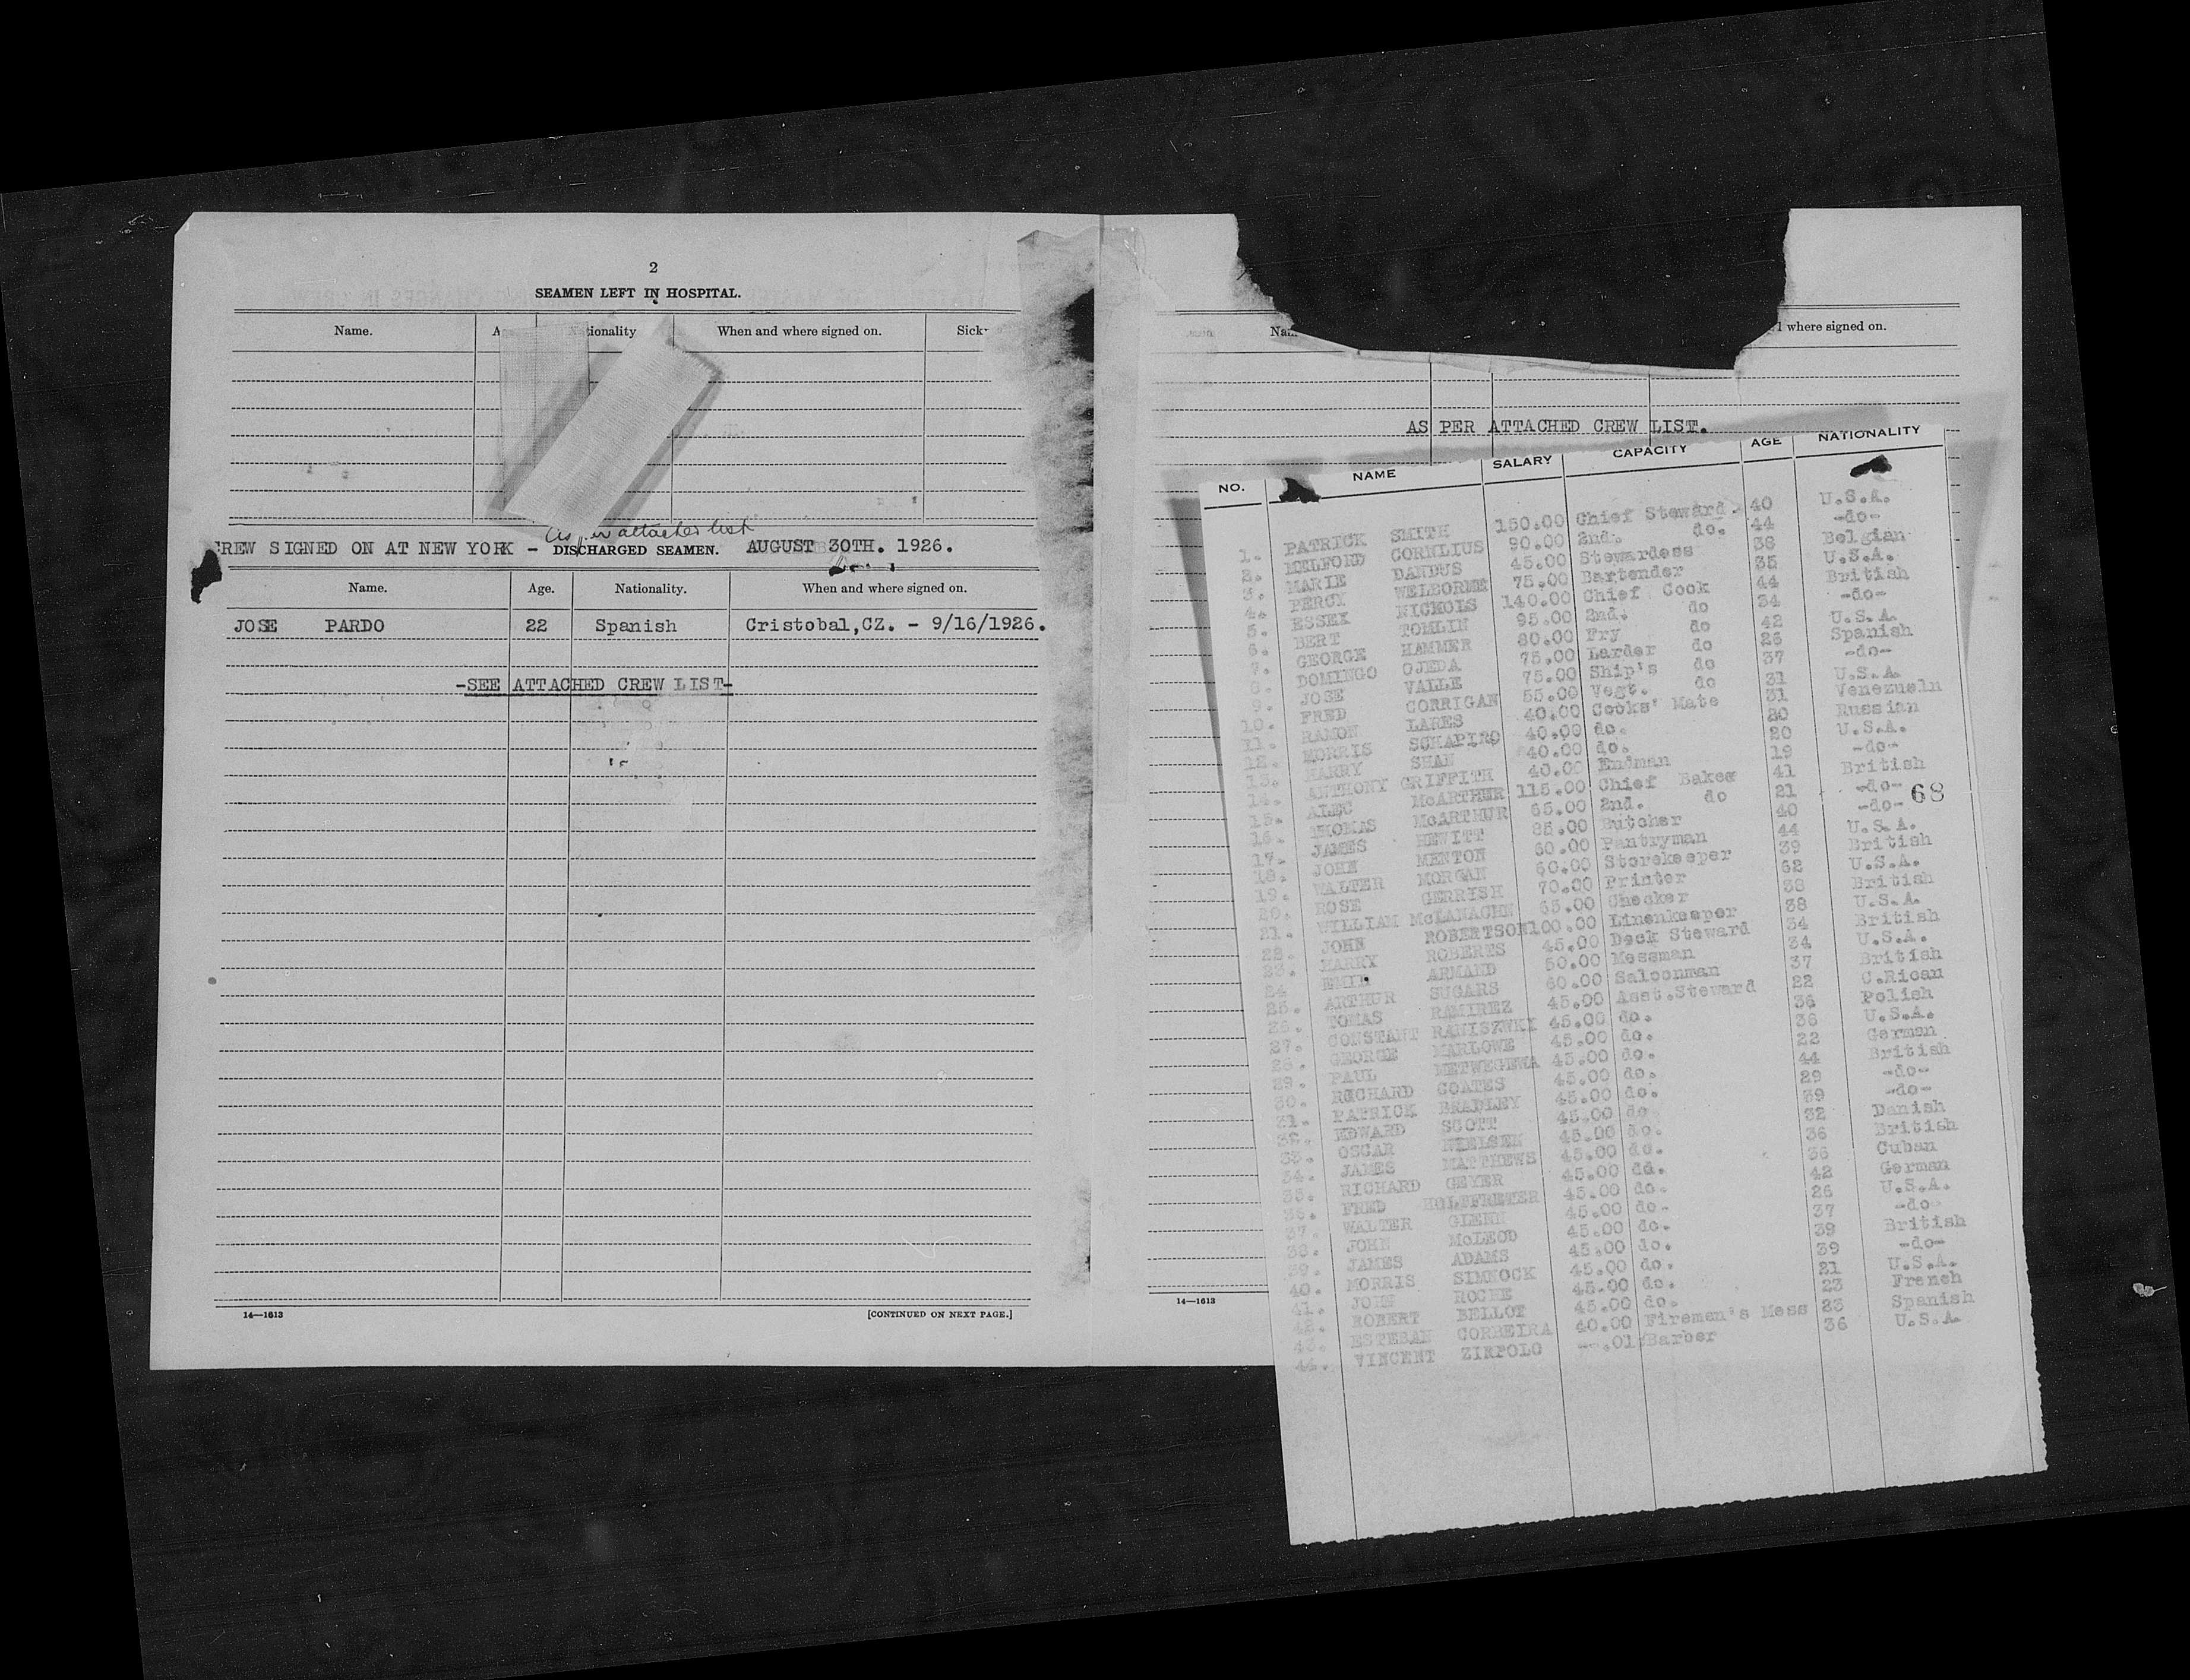 2
SEAMEN LEFT IN HOSPITAL.
Name. Nationality When and where signed on.
As per attached list
CREW SIGNED ON AT NEW YORK - DISCHARGED SEAMEN. AUGUST 30TH. 1926.
Name. Age. Nationality. When and where signed on.
JOSE PARDO 22 Spanish Cristobal,CZ. - 9/16/1926.
-SEE ATTACHED CREW LIST-
14—1613 [CONTINUED ON NEXT PAGE.]
where signed on.
AS PER ATTACHED CREW LIST.
NO. NAME SALARY CAPACITY AGE NATIONALITY
1. PATRICK SMITH 150.00 Chief Steward 40 U.S.A.
2. MELFORD CORNLIUS 90.00 2nd. do. 44 -do-
3. MARIE DANDUS 45.00 Stewardess 36 Belgian
4. PERCY WELBORME 75.00 Bartender 35 U.S.A.
5. ESSEX NICHOLS 140.00 Chief Cook 44 British
6. BERT TOMLIN 95.00 2nd. do 34 -do-
7. GEORGE HAMMER 80.00 Fry do 42 U.S.A.
8. DOMINGO OJEDA 75.00 Larder do 26 Spanish
9. JOSE VALLE 75.00 Ship's do 37 -do-
10. FRED CORRIGAN 55.00 Vegt. do 31 U.S.A.
11. RAMON LARES 40.00 Cooks' Mate 31 Venezueln
12. MORRIS SCHAPIRO 40.00 do. 20 Russian
13. HARRY SHAN 40.00 do. 20 U.S.A.
14. ANTHONY GRIFFITH 40.00 Endman 19 -do-
15. ALEC McARTHUR 115.00 Chief Baker 41 British
16. THOMAS McARTHUR 65.00 2nd. do 21 -do- 68
17. JAMES HEWITT 85.00 Butcher 40 -do-
18. JOHN MENTON 60.00 Pantryman 44 U.S.A.
19. WALTER MORGAN 60.00 Storekeeper 39 British
20. ROSE GERRISH 70.00 Printer 62 U.S.A.
21. WILLIAM McLANACHN 65.00 Checker 38 British
22. JOHN ROBERTSON 100.00 Linenkeeper 38 U.S.A.
23. HARRY ROBERTS 45.00 Deck Steward 34 British
24 EMIL ARMAND 50.00 Messman 34 U.S.A.
25. ARTHUR SUGARS 60.00 Saloonman 37 British
26. TOMAS RAMIREZ 45.00 Asst.Steward 22 C.Rican
27. CONSTANT RANISZWKY 45.00 do. 36 Polish
28. GEORGE MARLOWE 45.00 do. 36 U.S.A.
29. PAUL 45.00 do. 22 German
30. RICHARD COATES 45.00 do. 44 British
31. PATRICK BRADLEY 45.00 do. 29 -do-
32. EDWARD SCOTT 45.00 do 39 -do-
33. OSCAR NIELSEN 45.00 do. 32 Danish
34. JAMES MATTHEWS 45.00 do. 36 British
35. RICHARD GEYER 45.00 dd. 36 Cuban
36. FRED HOLTFRETER 45.00 do. 42 German
37. WALTER GLENN 45.00 do. 26 U.S.A.
38. JOHN McLEOD 45.00 do. 37 -do-
39. JAMES ADAMS 45.00 do. 39 British
40. MORRIS SIMNOCK 45.00 do. 39 -do-
41. JOHN ROCHE 45.00 do. 21 U.S.A.
42. ROBERT BELLOT 45.00 do. 23 French
43. ESTEBAN CORBEIRA 40.00 Firemen's Mess 23 Spanish
44. VINCENT ZIRPOLO --.01 Barber 36 U.S.A
14—1613